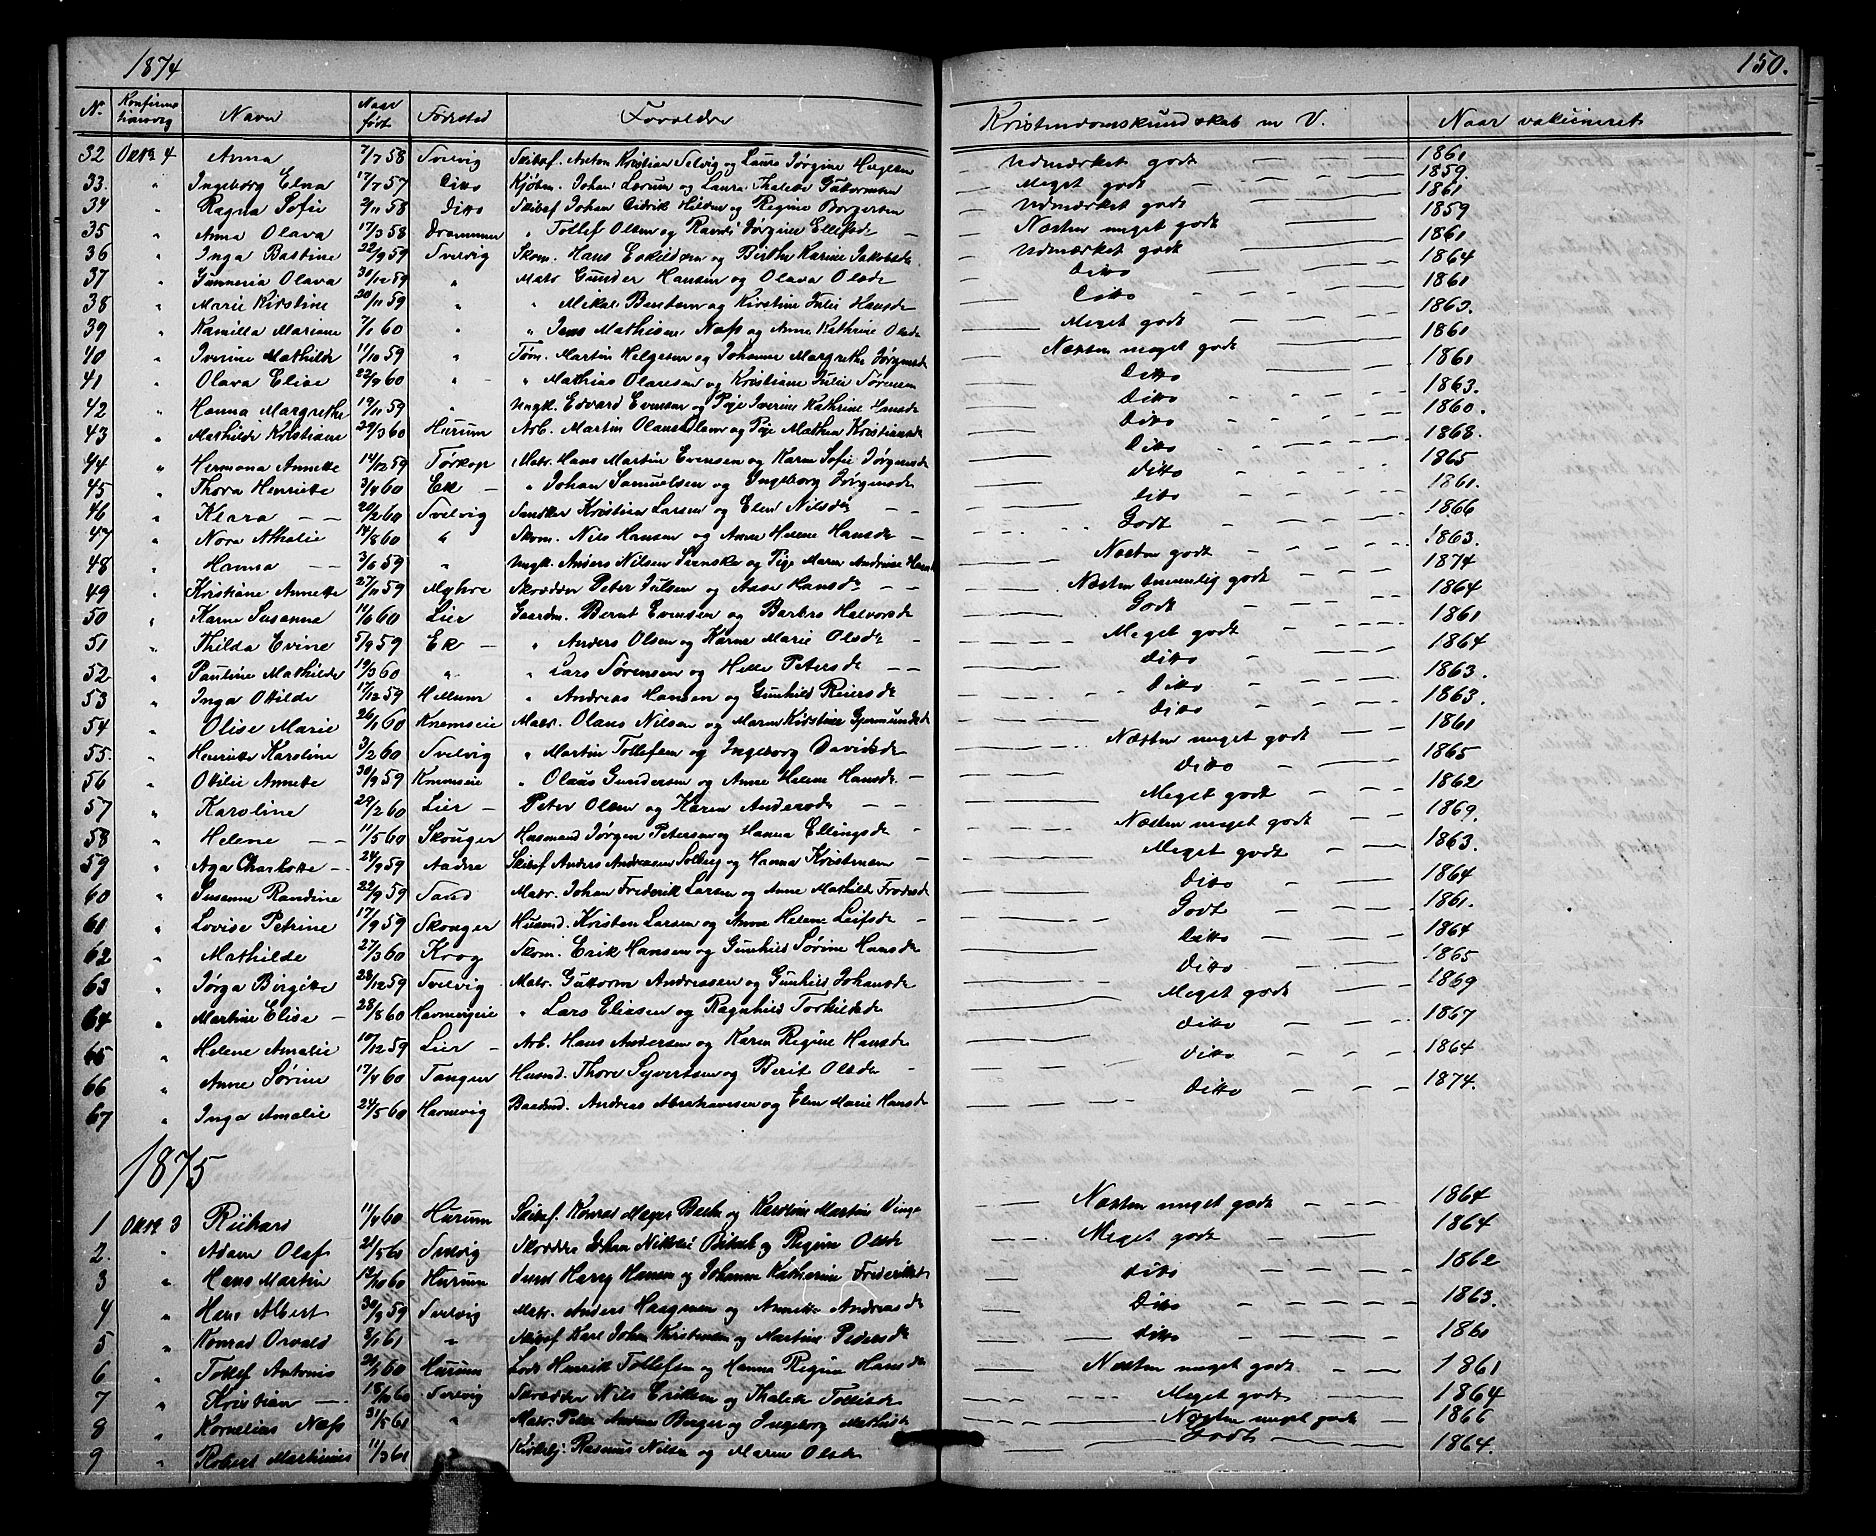 1874
150.
N. Konfirma tionsdag Navn Naar født Fødested Forældre Kristendomskundskab m V. Naar vakcineret
32 Oktr 4 Anna 7/7 58 Svelvig Skibsf. Anton Kristian Selvig og Laura Jørgine Helgesen Udmærket godt 1861
33. " Ingeborg Elna 17/7 57 Ditto Kjøbm. Johan Lærum og Laura Thalette Guttormsen Meget godt 1859.
34 " Ragna Sofie 2/11 58 Ditto Skibsf Johan Hilsen og Regine Borgersen Udmærket godt 1861
35 " Anna Olava 17/3 58 Drammen " Tollef Olsen og Randi Jørgine Ellefsdr Næsten meget godt 1859
36 " Inga Bastine 22/9 59 Svelvig Skom. Hans Eskildsen og Berthe Karine Jakobsdr Udmærket godt 1861
37 " Gunneria Olava 30/12 59 " Matr Gunder Hansen og Olava Olsdr Ditto 1864
38 " Marie Kirstine 20/11 59 " " Mikal Berntsen og Kirstine Julie Hansdr Ditto 1861
39 " Kamilla Mariane 7/1 60 " " Jens Mathisen Næss og Anne Kathrine Olsdr Meget godt 1863.
40 " Iverine Mathilde 11/10 59 " Tøm. Martin Helgesen og Johanne Margrethe Jørgensdr Næsten meget godt 1861
41 " Olava Elise 22/9 60 " " Mathias Olavesen og Kristiane Julie Sørensen Ditto 1861
42 " Hanna Margrethe 19/11 59 " Ungk. Edvard Evensen og Pige Iverine Kathrine Hansdr Ditto 1863.
43 " Mathilde Kristiane 29/3 60 Hurum Arb. Martin Olaus Olsen og Pige Mathea Kristiansdr Ditto 1860.
44 " Hermona Annette 14/12 59 Tørkop Matr. Hans Martin Evensen og Karen Sofie Jørgensdr Ditto 1868.
45 " Thora Henriette 3/4 60 Ek " Johan Samuelsen og Ingeborg Jørgensdr Ditto 1865
46 " Klara 20/2 60 Svelvig Snedker Kristian Larsen og Elen Nilsdr Ditto 1861.
47 " Nora Athalie 14/8 60 " Skom. Nils Hansen og Anne Helene Hansdr Godt 1866
48 " Hanna 3/6 59 " Ungk. Anders Nilsen Svenske og Pige Maren Andrine Hansdr Næsten godt 1863.
49 " Kristiane Annette 27/11 59 Myhre Skrædder Peter Julsen og Aase Hansdr Næsten temmelig godt 1874
50 " Karen Susanne 11/6 60 Lier Gaardm. Bernt Evensen og Barbro Halvorsdr Godt 1864
51 " Thilda Evine 5/9 59 Ek " Anders Olsen og Karen Marie Olsdr Meget godt 1861
52 " Pauline Mathilde 19/3 60 " " Lars Sørensen og Helle Petersdr Ditto 1864
53 " Inga Otilde 17/12 59 Hellum " Andreas Hansen og Gunhild Reiersdr Ditto 1863.
54 " Olise Marie 26/1 60 Knemseie Matr. Olaus Nilsen og Maren Kirstine Gjermundsdr Ditto 1863.
55. " Henriette Karoline 3/2 60 Svelvig " Martin Tollefsen og Ingeborg Davidsdr Næsten meget godt 1861
56 " Otilie Annette 30/9 59 Knemseie " Olaus Gundersen og Anne Helene Hansdr Ditto 1865
57 " Karoline 29/2 60 Lier Peter Olsen og Karen Andersdr Meget godt 1862
58 " Helene 11/5 60 Skouger Husmand Jørgen Petersen og Hanna Ellingsdr Næsten meget godt 1869.
59 " Aga Charlotte 24/9 59 Aadna Skibsf Anders Andreasen Solberg og Hanna Kristensen Meget godt 1863.
60 " Susanne Randine 22/9 59 Sand Matr. Johan Frederik Larsen og Anne Mathilde Frodesdr Ditto 1864
61 " Lovise Petrine 17/9 59 Skouger Husmd. Kristen Larsen og Anne Helene Leifsdr Godt 1861.
62 " Mathilde 27/3 60 Krog Skom. Erik Hansen og Gunhild Sørine Hansdr Ditto 1864
63 " Jørga Birgitte 28/12 59 Svelvig Matr. Guttorm Andreassen og Gunhild Johansdr Ditto 1865
64 " Martine Elise 28/8 60 Havnevigeie " Lars Eliasen og Ragnhild Torkildsdr Meget godt 1869
65 " Helene Amalie 10/12 59 Lier Arb. Hans Andersen og Karen Regine Hansdr Ditto 1867
66 " Anne Sørine 17/4 60 Tangen Husmd. Thore Syvertsen og Berit Olsdr Ditto 1864
67 " Inga Amalie 24/5 60 Havnevig Baadmd. Andreas Abrahamsen og Elen Marie Hansdr Ditto 1874.
1875
1 Oktr 3 Rikhard 11/4 60 Hurum Skibsf. Konrad Meyer Bache og Karoline Martine Vinge Næsten meget godt 1864
2. " Adam Olaf 21/5 60 Svelvig Skrædder Johan Nikolai og Regine Olsdr Meget godt 1864
3 " Hans Martin 12/10 60 Hurum Harry Hansen og Johanne Katharine Frederiksdr Ditto 1862
4 " Hans Albert 30/9 59 Svelvig Matr. Anders Haagensen og Annette Andreasdr Ditto 1863.
5 " Konrad Osvald 3/1 61 " Skibsf Karl Johan Kristensen og Martine Pedersdr Ditto 1861
6 " Tollef Antonius 24/2 60 Hurum Lods Henrik Tollefsen og Hanna Regine Hansdr Næsten meget godt 1861
7 " Kristian 18/10 60 Svelvig Skrædder Nils Eriksen og Thalette Tollefsdr Meget godt 1864
8 " Kornelius Næss 31/5 61 " Matr. Peter Berger og Ingeborg Mathisdr Næsten meget godt 1866
9 " Robert Marthinius 11/3 61 Rasmus Nilsen og Maren Olsdr Godt 1864.